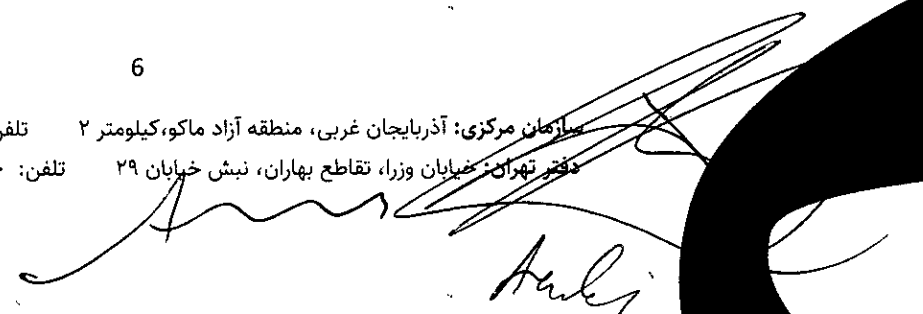 6
سازمان مرکزی: آذربایجان غربی، منطقه آزاد ماکو،کیلومتر ۲ تلفن
دفتر تهران: خیابان وزرا، تقاطع بهاران، نبش خیابان ۲۹ تلفن: